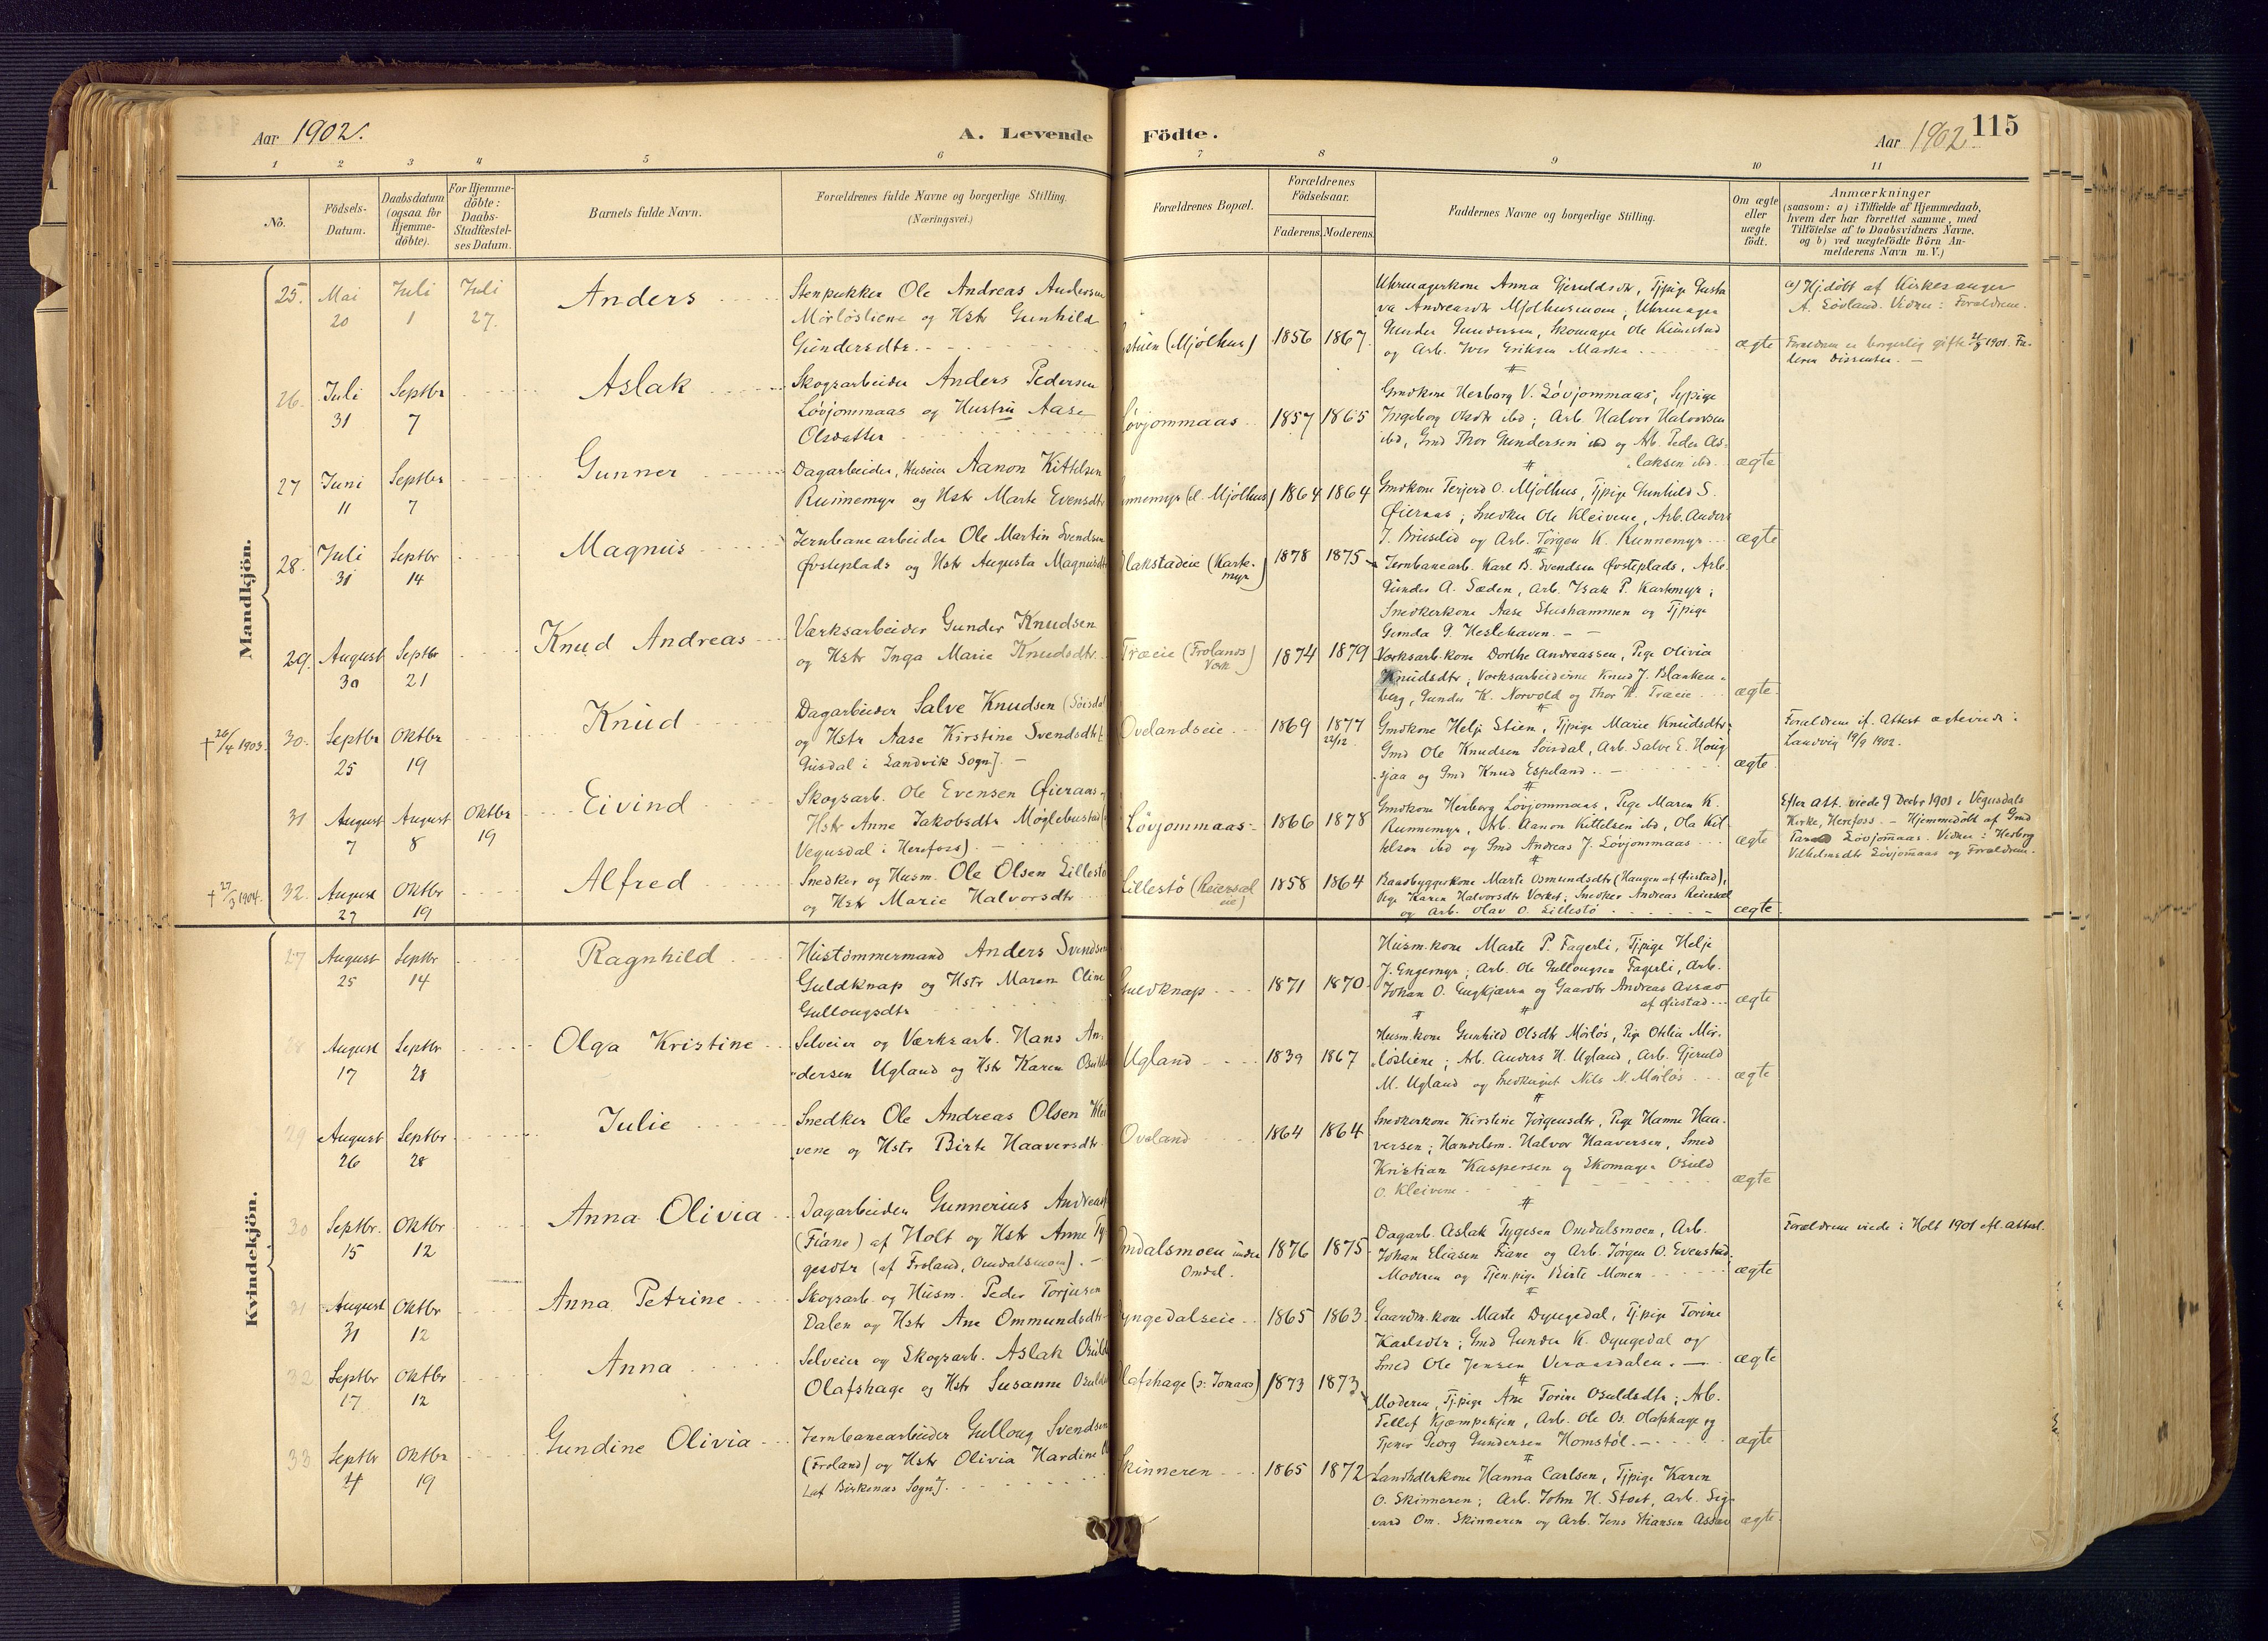 Aar 1902.
A. Levende
Födte.
Aar 1902
115
1 2 3 4 5 6 7 8 9 10 11
No.
Födsels-
Datum.
Daabsdatum
(ogsaa for
Hjemme-
döbte).
For Hjemme-
döbte:
Daabs-
Stadfæstel-
ses Datum.
Barnets fulde Navn.
Forældrenes fulde Navne og borgerlige Stilling.
(Næringsvei.)
Forældrenes Bopæl.
Forældrenes
Födselsaar.
Faderens.
Moderens.
Faddernes Navne og borgerlige Stilling.
Om ægte
eller
uægte
födt.
Anmærkninger
(saasom: a) i Tilfælde af Hjemmedaab,
hvem der har forrettet samme, med
Tilföielse af to Daabsvidners Navne,
og b) ved uægtefödte Börn An-
melderens Navn m. V.)
Mandkjön.
25. Mai 20
Juli 1
Juli 27.
Anders
Stenpukker Ole Andreas Andersen
Mörlösliene og Hstr Gunhild
Gundersdtr.
(Mjölhus)
1856
1867
Uhrmagerkone Anna Gjeruldsdtr, Tjpige Gusta
va Andreasdtr Mjölhusmoen, Uhrmager
Gunder Gundersen, Skomager Ole
og Arb. Iver Eriksen
ægte
a) Hj.döbt af Kirkesanger
A. Lövland. Vidner: Forældrene.
Forældrene er borgerlig gifte 1901. Fa-
deren Dissenter.
26. Juli 31
Septbr 7
Aslak
Skogsarbeider Anders Pedersen
Lövjommaas og Hustru Aase
Olsdatter
Lövjommaas
1857
1865
Gmdkone Herborg V. Lövjommaas, Sypige
Ingeborg Olsdtr ibd; Arb. Halvor Halvorsen
ibd, Gmd Thor Gundersen ibd og Arb. Peder As-
laksen ibd.
ægte
27 Juni 11
Septbr 7
Gunner
Dagarbeider, Huseier Aanon Kittelsen
Runnemyr og Hstr Marte Evensdtr
nnemyr (d. Mjölhus)
1864
1864
Gmdkone Terjerd O. Mjölhus, Tjpige Gunhild S.
Öieraas; Snedker Ole Kleivene, Arb. Anders
J. Bruslid og Arb. Jörgen K. Runnemyr
ægte
28. Juli 31
Septbr 14
Magnus
Jernbanearbeider Ole Martin Svendsen
Övsteplads og Hstr Augusta Magnusdtr
Blakstadeie (Karte-
myr)
1878
1875
Jernbanearb. Karl B. Svendsen Övsteplads, Arb.
Gunder A. Sæden, Arb. Isak P. Kartemyr;
Snedkerkone Aase Stushammen og Tjpige
Gemda G. Heslehaven.
29. August 30
Septbr 21
Knud Andreas
Værksarbeider Gunder Knudsen
og Hstr Inga Marie Knudsdtr
Træeie (Frolands
Værk)
1874
1879
Værksarb.kone Dorthe Andreassen, Pige Olivia
Knudsdtr; Værksarbeiderne Knud J. Blanken-
berg, Gunder K. Norvold og Thor K. Træeie
ægte
† 26/4 1903.
30. Septbr 25
Oktbr 19
Knud
Dagarbeider Salve Knudsen (Söisdal
og Hstr Aase Kirstine Svendsdtr [
Gusdal i Landvik Sogn].
Ovelandseie
1869
1877
22/12
Gmdkone Helje Stien, Tjpige Marie Knudsdtr;
Gmd Ole Knudsen Söisdal, Arb. Salve E. Houg-
sjaa og Gmd Knud Espeland.
ægte
Forældrene if. Attest ægteviede i
Landvig 19/9 1902.
31 August 7
August 8
Oktbr 19
Eivind
Skogsarb. Ole Evensen Öieraas
Hstr Anne Jakobsdtr Möglebustad (
Vegusdal i Herefoss).
Lövjommaas
1866
1878
Gmdkone Herborg Lövjommaas, Pige Maren K.
Runnemyr, Arb. Aanon Kittelsen ibd, Ola Kit-
telsen ibd og Gmd Andreas J. Lövjommaas
ægte
Efter Att. viede 9 Decbr 1901 i Vegusdals
Kirke, Herefoss. - Hjemmedöbt af Gmd
Lövjommaas. Vidner: Herborg
Vilhelmsdtr Lövjommaas og Forældrene.
† 27/3 1904.
32. August 27
Oktbr 19
Alfred
Snedker og Husm. Ole Olsen Lillestö
og Hstr Marie Halvorsdtr
Lillestö (Reiersöl
eie)
1858
1864
Baadbyggerkone Marte Osmundsdtr (Haugen af Öiestad),
Pige Karen Halvorsdtr Værket; Snedker Andreas Reiersøl
og Arb. Olav O. Lillestö
ægte
Kvindekjön.
27 August 25
Septbr 14
Ragnhild
Hustömmermand Anders Svendsen
Guldknap og Hstr Maren Oline
Gullougsdtr
Guldknap
1871
1870
Husm.kone Marte P. Fagerli, Tjpige Helje
J. Engemyr; Arb. Ole Gullougsen Fagerli, Arb.
Johan O. Engkjærr og Gaardbr Andreas Assav
af Öiestad
ægte
28 August 17
Septbr 28
Olga Kristine
Selveier og Værksarb. Hans An-
dersen Ugland og Hstr Karen Osulds
Ugland
1839
1867
Husm.kone Gunhild Olsdtr Mörlös, Pige Othlia Mör-
lösliene; Arb. Anders H. Ugland, Arb. Gjeruld
M. Ugland og Nils N. Mörlös
ægte
29 August 26
Septbr 28
Julie
Snedker Ole Andreas Olsen Klei
vene og Hstr Birte Haaversdtr
Oveland
1864
1864
Snedkerkone Kirstine Jörgensdtr, Pige Hanne Haa-
versen; Handelsm. Halvor Haaversen, Smed
Kristian Kaspersen og Skomager Osuld
O. Kleivene
ægte
30 Septbr. 15
Oktbr 12
Anna Olivia
Dagarbeider Gunnerius Andreas
(Fiane) af Holt og Hstr Anne Ty-
gesdtr (af Froland, Omdalsmoen).
mdalsmoen under
Omdal.
1876
1875
Dagarb. Aslak Tygesen Omdalsmoen, Arb.
Johan Eliasen Fiane og Arb. Jörgen O. Evenstad;
Moderen og Tjen.pige Birte Monen
ægte
Forældrene viede i Holt 1901 efl. Attest.
31 August 31
Oktbr 12
Anna Petrine
Skogsarb. og Husm. Peder Torjusen
Dalen og Hstr Ane Ommundsdtr
yngedalseie
1865
1863
Gaardm.kone Marte Dyngedal, Tjpige Torine
Karlsdtr; Gmd Gunder K. Dyngedal og
Smed Ole Jensen Veraasdalen.
ægte
32 Septbr 17
Oktbr 12
Anna
Selveier og Skogsarb. Aslak Osulds
Olafshage og Hstr Susanne Osulds
lafshage (o: Jomaas)
1873
1873
Moderen, Tj.pige Ane Torine Osuldsdtr; Arb.
Tellef Kjæmpekjen, Arb. Ole Os. Olafshage og
Tjener Georg Gundersen Homstöl.
ægte
33 Septbr 4
Oktbr 19
Gundine Olivia
Jernbanearbeider Gulloug Svendsen
(Froland) og Hstr Olivia Hardine
[af Birkenæs Sogn].
Skinneren
1865
1872
Landhdlrkone Hanna Carlsen, Tjpige Karen
O. Skinneren; Arb. John H. Stoet, Arb. Sig-
vard Om. Skinneren og Arb. Jens Assav
ægte